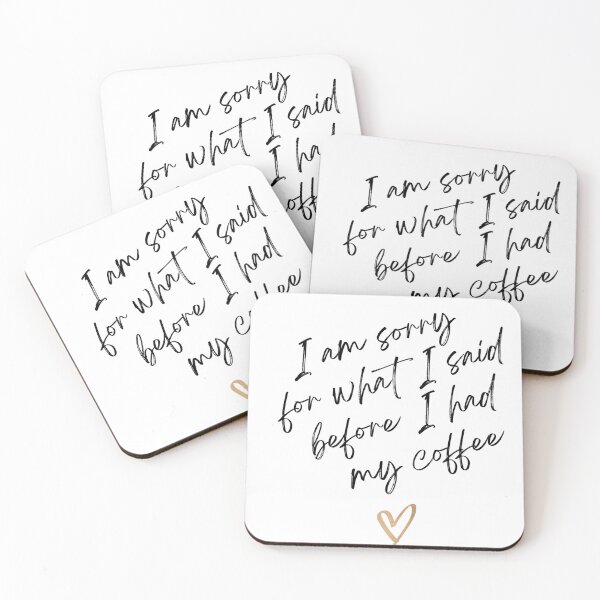 I am sorry
for what I said
I had
I am sorry
for what I said
before I had
my coffee
I am sorry
for what I said
before I had
my coffee
I am sorry
for what I said
before I had
my coffee